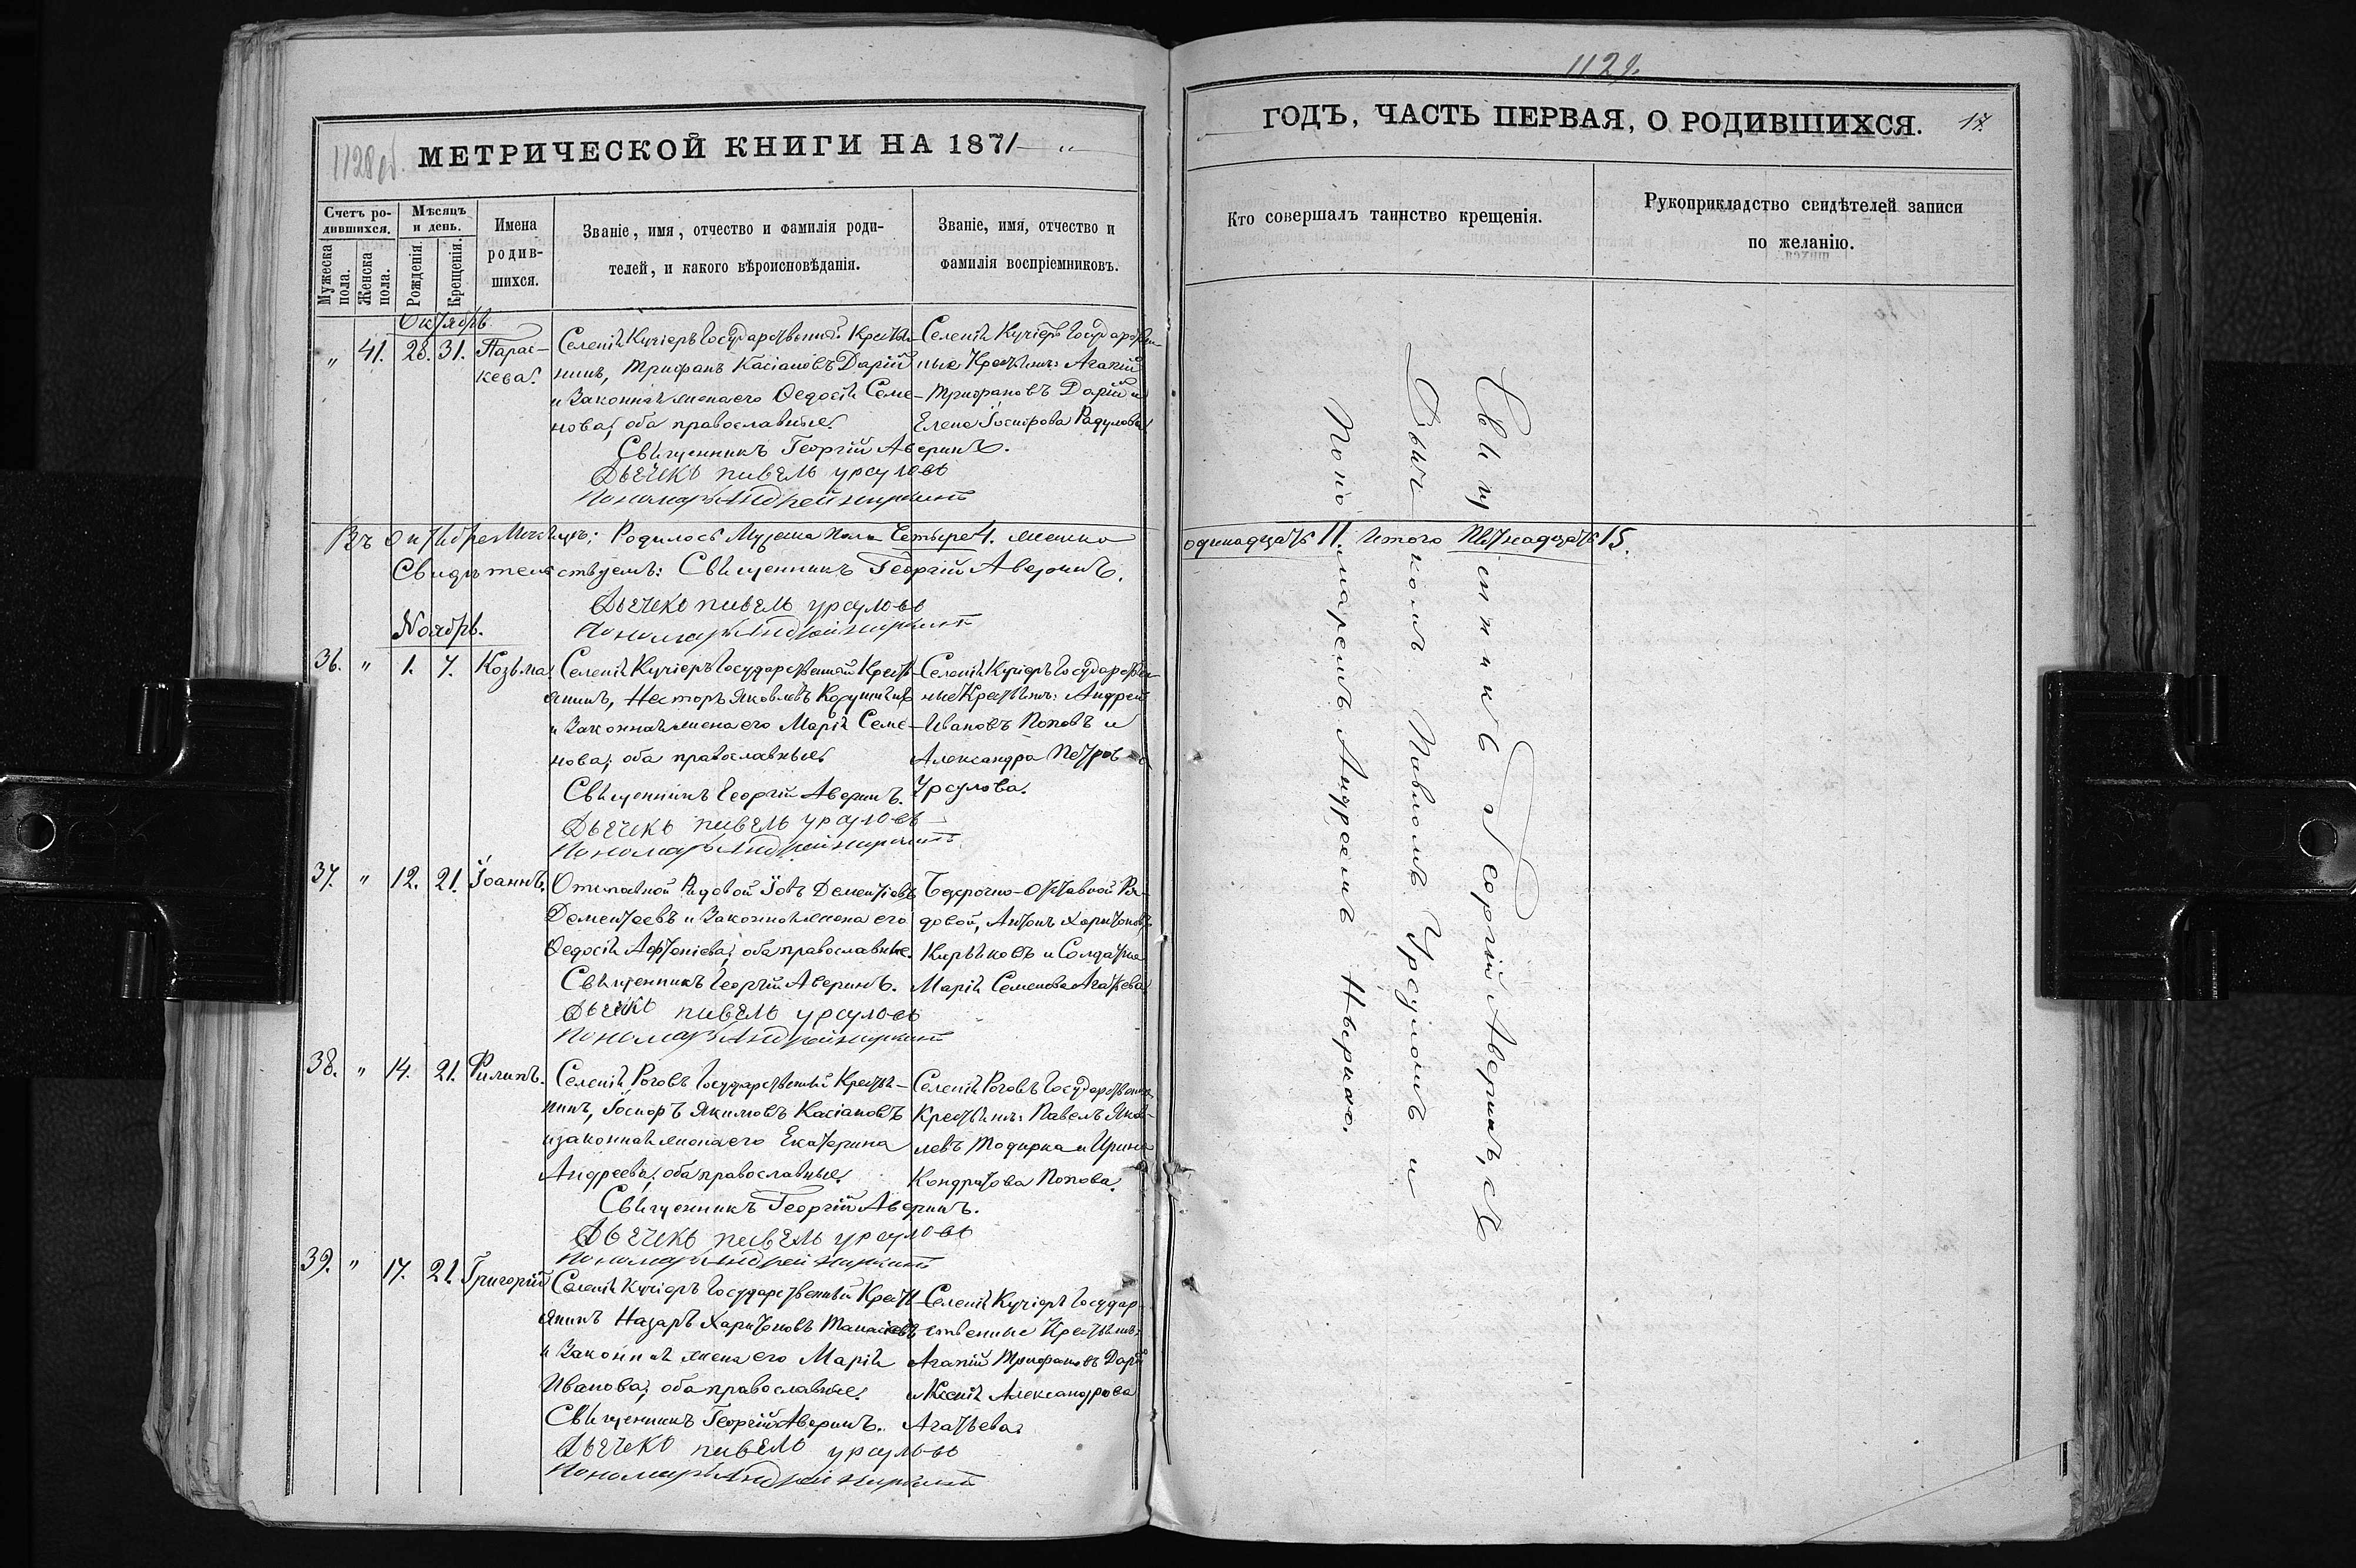 1128 об.
МЕТРИЧЕСКОЙ КНИГИ НА 1871 "
Счетъ родившихся.
Мѣсяцъ и день.
Мужеска пола.
Женска пола.
Рожденія.
Крещенія.
Имена родившихся.
Званіе, имя, отчество и фамилія родителей, и какого вѣроисповѣданія.
Званіе, имя, отчество и фамилія воспріемниковъ.
Октябрь
" 41. 28. 31. Параскева.
Селенія Кучіеръ Государственный Крестьянинъ,
Трифанъ Касіановъ Дарій
и Законная жена его Ѳедосія Семенова,
оба православные.
Селенія Кучіеръ Государственные
Крестьяне: Агапій
Трифановъ Дарій и
Елена Іосифова Радулова
Священникъ Георгій Аверинъ.
Дьячекъ Павелъ Урсуловъ
Пономарь Андрей
Въ Октябре Месяцъ; Родилось Мужеска Пола Четыре 4. женско
Свидѣтельствуемъ: Священникъ Георгій Аверинъ.
Дьячекъ Павелъ Урсуловъ
Пономарь Андрей
Ноябрь.
36. " 1. 7. Козьма.
Селенія Кучіеръ Государственный Крестьянинъ,
Несторъ Яковлевъ
и Законная жена его Марія Семенова,
оба православные.
Селенія Кучіеръ Государственные
Крестьяне: Андрей
Ивановъ Поповъ и
Александра Петрова
Урсулова.
Священникъ Георгій Аверинъ.
Дьячекъ Павелъ Урсуловъ
Пономарь Андрей
37. " 12. 21. Іоаннъ.
Отставной Рядовой Іовъ Дементіевъ
Дементьевъ и Законная жена его
Ѳедосія Афтеніева, оба православные.
Безсрочно-Отставной Рядовой,
Антонъ Харитоновъ
Кирьяковъ и Солдатка
Марія Семенова Агатьева
Священникъ Георгій Аверинъ.
Дьячекъ Павелъ Урсуловъ
Пономарь Андрей
38. " 14. 21. Филипъ.
Селенія Роговъ Государственный Крестьянинъ,
Іосифъ Якимовъ Касіановъ
и законная жена его Екатерина
Андреева, оба православные.
Селенія Роговъ Государственные
Крестьяне: Павелъ Яковлевъ
Тодирка и Ирина
Кондратова Попова.
Священникъ Георгій Аверинъ.
Дьячекъ Павелъ Урсуловъ
Пономарь Андрей
39. " 17. 21. Григорій
Селенія Кучіеръ Государственный Крестьянинъ
Назаръ Харитоновъ
и Законная жена его Марія
Иванова, оба православные.
Селенія Кучіеръ Государственные
Крестьяне:
Агапій Трифановъ Дарій
и Ксенія Александрова
Агатьева.
Священникъ Георгій Аверинъ.
Дьячекъ Павелъ Урсуловъ
Пономарь Андрей
1129.
ГОДЪ, ЧАСТЬ ПЕРВАЯ, О РОДИВШИХСЯ. 17.
Кто совершалъ таинство крещенія.
Рукоприкладство свидѣтелей записи по желанію.
одинадцать 11. Итого Пятнадцать 15.
Священникъ Георгій Аверинъ, съ
Дьячкомъ Павломъ Урсуломъ и
Пономаремъ Андреемъ